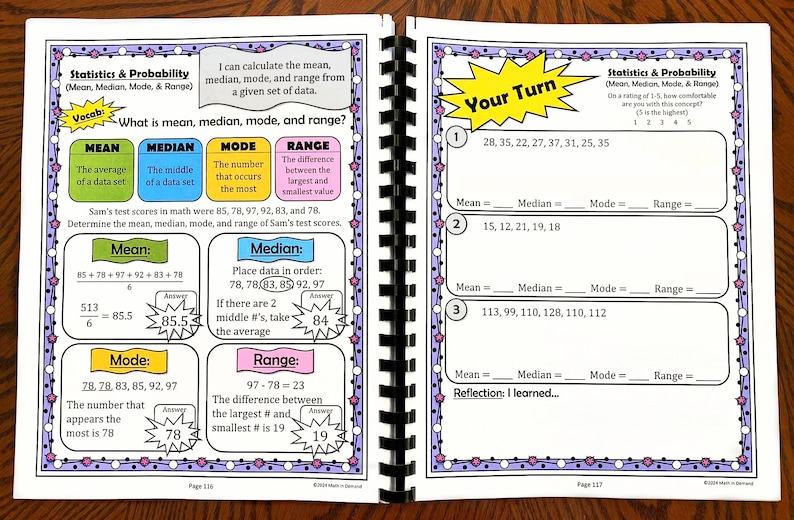 Statistics & Probability
(Mean, Median, Mode, & Range)
I can calculate the mean,
median, mode, and range from
a given set of data.
Vocab:
What is mean, median, mode, and range?
MEAN
The average
of a data set
MEDIAN
The middle
of a data set
MODE
The number
that occurs
the most
RANGE
The difference
between the
largest and
smallest value
Sam's test scores in math were 85, 78, 97, 92, 83, and 78.
Determine the mean, median, mode, and range of Sam's test scores.
Mean:
85 + 78 + 97 + 92 + 83 + 78
6
513
6
= 85.5
Answer
85.5
Median:
Place data in order:
78, 78, 83, 85, 92, 97
If there are 2
middle #'s, take
the average
Answer
84
Mode:
78, 78, 83, 85, 92, 97
The number that
appears the
most is 78
Answer
78
Range:
97 - 78 = 23
The difference between
the largest # and
smallest # is 19
Answer
19
Page 116
©2024 Math in Demand
Your Turn
Statistics & Probability
(Mean, Median, Mode, & Range)
On a rating of 1-5, how comfortable
are you with this concept?
(5 is the highest)
1 2 3 4 5
1
28, 35, 22, 27, 37, 31, 25, 35
Mean = ____ Median = ____ Mode = ____ Range = ____
2
15, 12, 21, 19, 18
Mean = ____ Median = ____ Mode = ____ Range = ____
3
113, 99, 110, 128, 110, 112
Mean = ____ Median = ____ Mode = ____ Range = ____
Reflection: I learned...
Page 117
©2024 Math in Demand